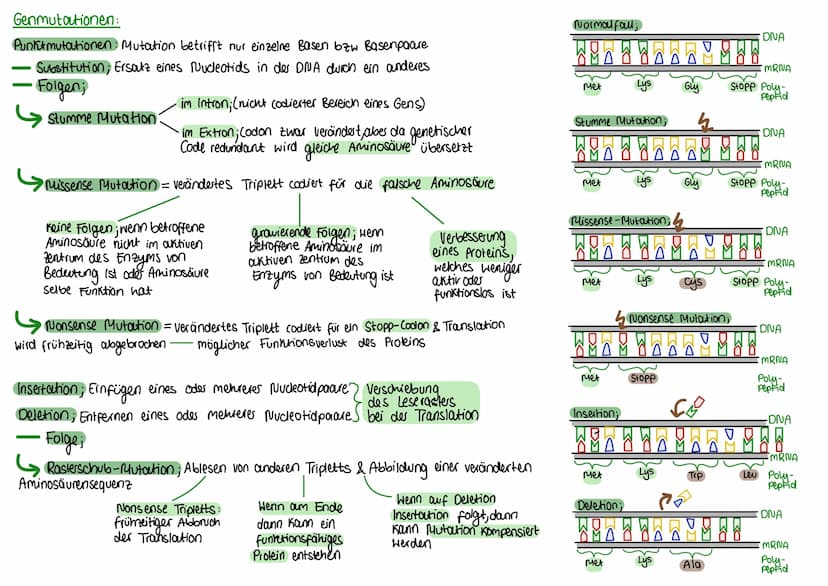 Genmutationen:
Punktmutationen: Mutation betrifft nur einzelne Basen bzw Basenpaare
— Substitution; Ersatz eines Nucleotids in der DNA durch ein anderes
— Folgen;
Stumme Mutation
im Intron; (nicht codierter Bereich eines Gens)
im Extron; Codon zwar verändert, aber da genetischer
Code redundant wird gleiche Aminosäure übersetzt
Missense Mutation = verändertes Triplett codiert für die falsche Aminosäure
Keine Folgen; wenn betroffene
Aminosäure nicht im aktiven
Zentrum des Enzyms von
Bedeutung ist oder Aminosäure
selbe Funktion hat
gravierende Folgen; wenn
betroffene Aminosäure im
aktiven Zentrum des
Enzyms von Bedeutung ist
Verbesserung
eines Proteins,
welches weniger
aktiv oder
funktionslos ist
Nonsense Mutation = verändertes Triplett codiert für ein Stopp-Codon & Translation
wird frühzeitig abgebrochen — möglicher Funktionsverlust des Proteins
Insertation; Einfügen eines oder mehrerer Nucleotidpaare
Deletion; Entfernen eines oder mehrerer Nucleotidpaare
Verschiebung
des Leserasters
bei der Translation
— Folge;
Rasterschub-Mutation; Ablesen von anderen Tripletts & Abbildung einer veränderten
Aminosäurensequenz
Nonsense Tripletts:
frühzeitiger Abbruch
der Translation
Wenn am Ende
dann kann ein
funktionsfähiges
Protein entstehen
Wenn auf Deletion
Insertation folgt, dann
kann Mutation kompensiert
werden
Normalfall;
DNA
mRNA
Met Lys Gly Stopp Poly-
Peptid
Stumme Mutation;
DNA
mRNA
Met Lys Gly Stopp Poly-
Peptid
Missense-Mutation;
DNA
mRNA
Met Lys Cys Stopp Poly-
Peptid
Nonsense Mutation;
DNA
mRNA
Met Stopp Poly-
Peptid
Insertion;
DNA
mRNA
Met Lys Trp Leu Poly-
Peptid
Deletion;
DNA
mRNA
Met Lys Ala Poly-
Peptid